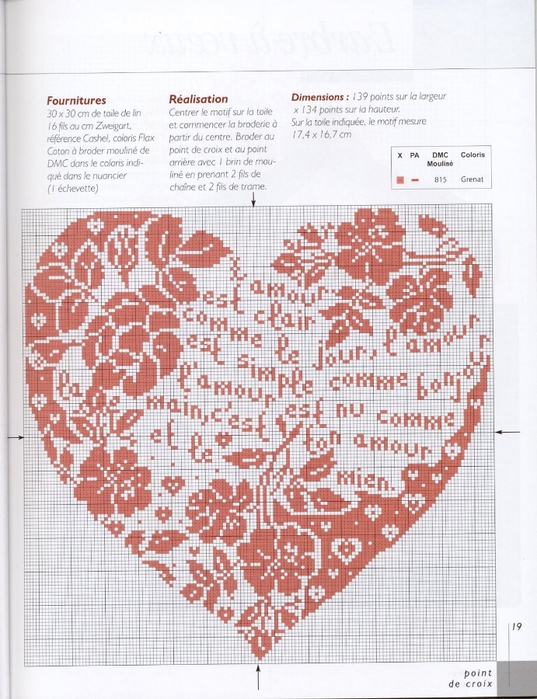 Fournitures
30 x 30 cm de toile de lin
16 fils au cm Zweigart,
référence Cashel, coloris Flax
Coton à broder mouliné de
DMC dans le coloris indi-
qué dans le nuancier
(1 échevette)
Réalisation
Centrer le motif sur la toile
et commencer la broderie à
partir du centre. Broder au
point de croix et au point
arrière avec 1 brin de mou-
liné en prenant 2 fils de
chaîne et 2 fils de trame.
Dimensions : 139 points sur la largeur
x 134 points sur la hauteur.
Sur la toile indiquée, le motif mesure
17,4 x 16,7 cm
X PA DMC Mouliné Coloris
815 Grenat
l'amour
est clair
comme le jour, l'amour
est simple comme bonjour
l'amour est nu comme
la main, c'est ton amour
et le mien.
19
point
de croix